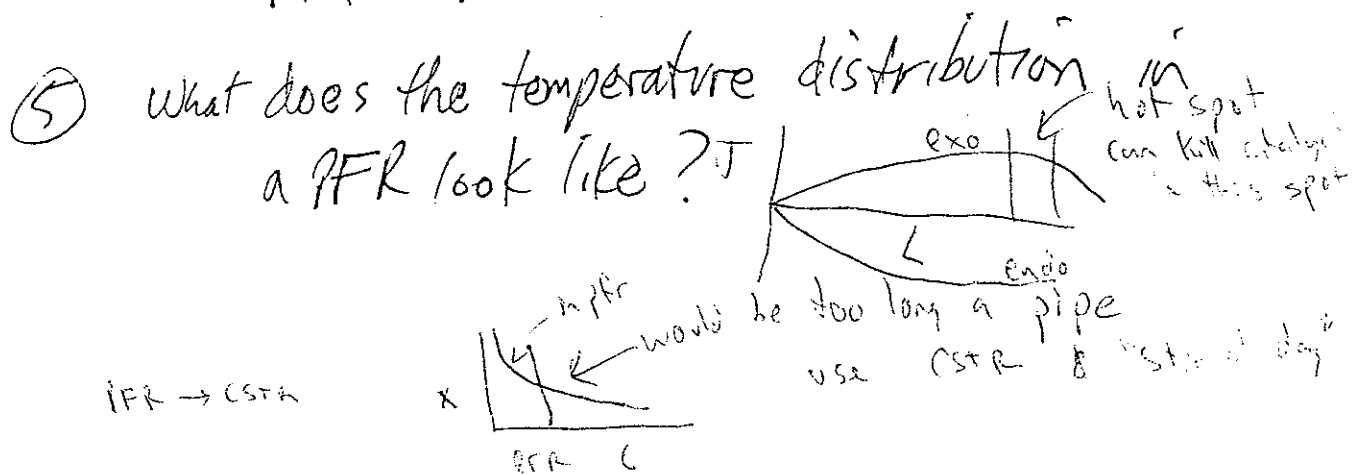 ⑤ What does the temperature distribution in
a PFR look like?
T
exo
hot spot
can kill
in this spot
L
endo
in pfr
would be too long a pipe
use CSTR &
PFR → CSTR
X
PFR C